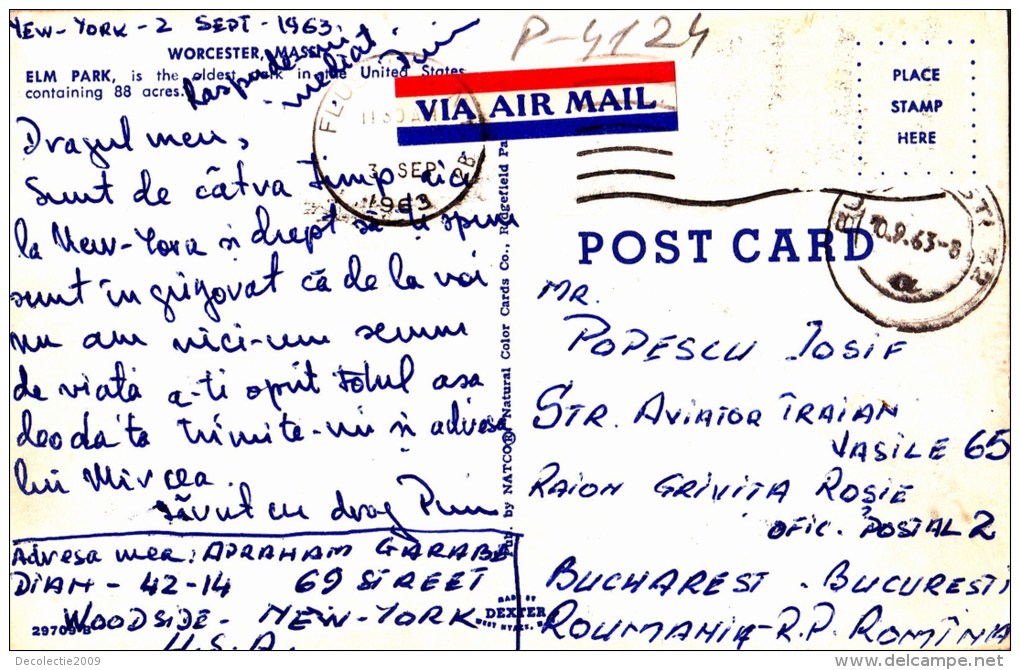 NEW-YORK-2 SEPT-1963.
WORCESTER, MASS.
ELM PARK, is the oldest park in the United States
containing 88 acres.
Raspunde imediat.
Puiu
P-4124
VIA AIR MAIL
PLACE
STAMP
HERE
FLU
11 30 AM
3 SEP
1963
POST CARD
10.9.63-8
Dragul meu,
Sunt de câtva timp aici
la New-York si drept să-ți spun
sunt îngrijorat că de la voi
nu am nici-un semn
de viată a-ti oprit totul asa
deodata trimite-mi si adresa
lui Mircea.
Sărut cu drag Puiu
Adresa mea: APRAHAM GARABE
DIAN - 42-14 69 STREET
WOODSIDE - NEW-YORK
U.S.A.
29709-B
Pub. by NATCOR, Natural Color Cards Co., Ridgefield Pa
MADE BY
DEXTER
WEST NYACK, N.
MR.
POPESCU IOSIF
STR. AVIATOR TRAIAN
VASILE 65
RAION GRIVIȚA ROȘIE
OFIC. POSTAL 2
BUCHAREST - BUCUREȘTI
ROUMANIA - R.P. ROMÎNIA
Decolectie2009
delcampe.net